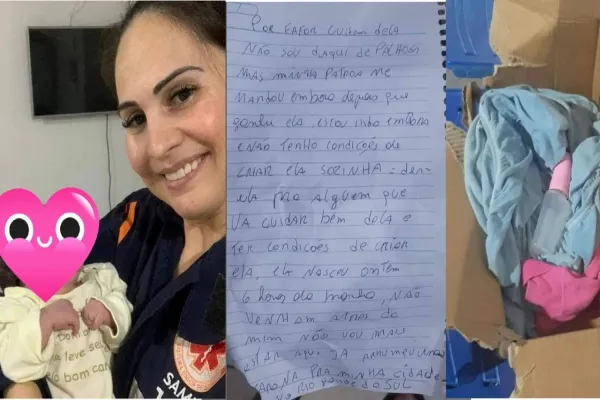 POR FAFOR CUIDEM DELA
NÃO SOU DAQUI DE PALHOÇA
MAS MINHA PATROA ME
MANDOU EMBORA depois que
ganhei ela, estou indo embora
e NÃO TENHO CONDIÇÕES de
CRIAR ELA SOZINHA
PRA Alguem que
VA CUIDAR bem dela e
TER CONDICOES DE CRIAR
ELA, ELA NASCEU ONTEM
6 horas da manha, NÃO
VENHAM ATRAS DE
MIM NÃO VOU MAIS
ESTAR AQUI. JA ARRUMEI UMA
CARONA PRA MINHA CIDADE
RIO DO SUL
SAM